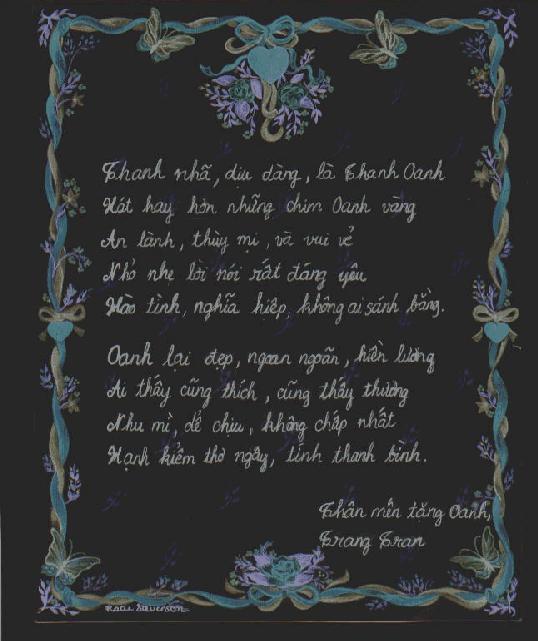 Thanh nhã, dịu dàng, là Thanh Oanh
Hát hay hơn những chim Oanh vàng
An lành, thùy mị, và vui vẻ
Nhỏ nhẹ lời nói rất đáng yêu
Hào tình, nghĩa hiệp, không ai sánh bằng.
Oanh lại đẹp, ngoan ngoãn, hiền lương
Ai thấy cũng thích, cũng thấy thương
Nhu mì, dể chịu, không chấp nhất
Hạnh kiểm thơ ngây, tính thanh bình.
Thân mến tặng Oanh,
Trang Tran